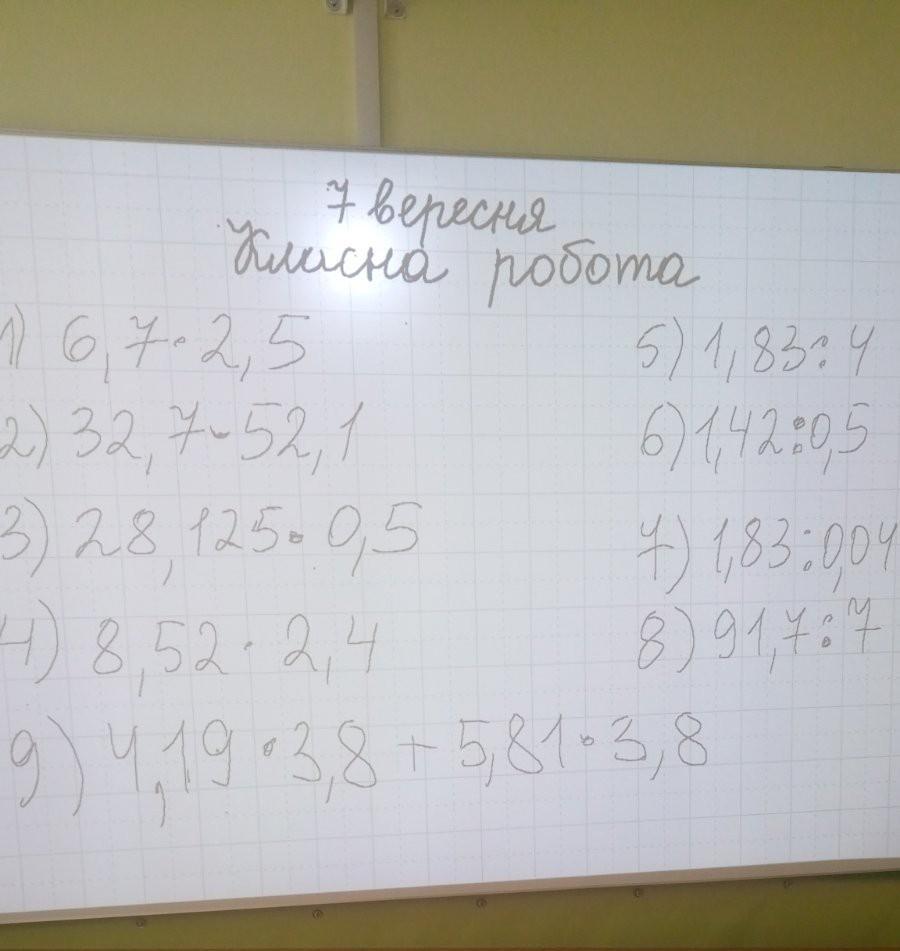 7 вересня
Класна робота
1) 6,7·2,5
2) 32,7·52,1
3) 28,125·0,5
4) 8,52·2,4
5) 1,83:4
6) 1,42:0,5
7) 1,83:0,04
8) 91,7:7
9) 4,19·3,8+5,81·3,8